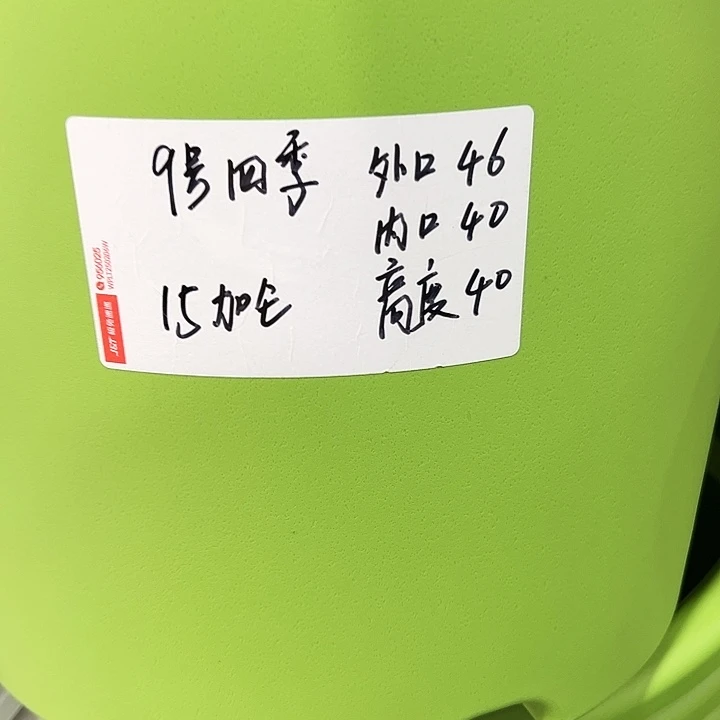 9号四季
15加仑
外口 46
内口 40
高度 40
J&T 极兔速递
956025